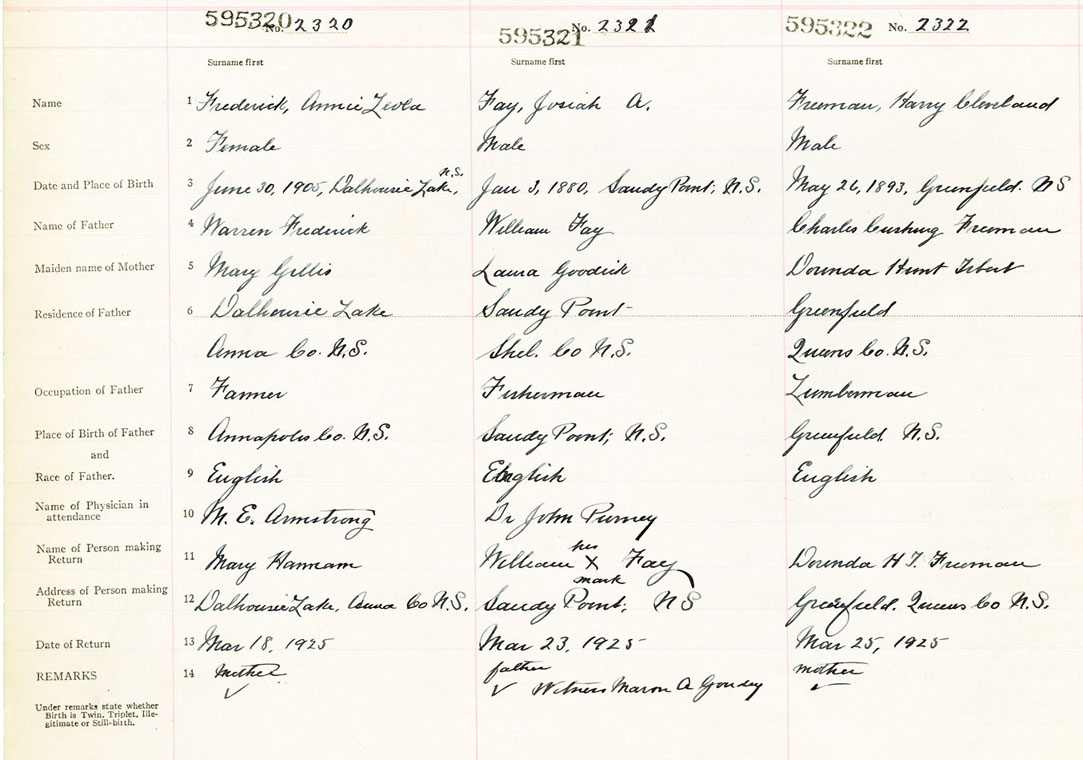 595320 No. 2320 595321 No. 2321 595322 No. 2322
Surname first Surname first Surname first
Name 1 Frederick, Annie Leola Fay, Josiah A. Freeman, Harry Cleveland
Sex 2 Female Male Male
Date and Place of Birth 3 June 30, 1905, Dalhousie Lake, N.S. Jan 3, 1880, Sandy Point, N.S. May 26, 1893, Greenfield. NS
Name of Father 4 Warren Frederick William Fay Charles Cushing Freeman
Maiden name of Mother 5 Mary Gillis Laura Goodick Dorinda Hunt
Residence of Father 6 Dalhousie Lake Sandy Point Greenfield
Anna Co. N.S. Shel. Co N.S. Queens Co. N.S.
Occupation of Father 7 Farmer Fisherman Lumberman
Place of Birth of Father 8 Annapolis Co. N.S. Sandy Point, N.S. Greenfield N.S.
and
Race of Father. 9 English English English
Name of Physician in
attendance 10 M. E. Armstrong Dr John Purney
Name of Person making
Return 11 Mary Hannam William his X mark Fay Dorinda H T. Freeman
Address of Person making
Return 12 Dalhousie Lake, Anna Co N.S. Sandy Point, NS Greenfield. Queens Co N.S.
Date of Return 13 Mar 18, 1925 Mar 23, 1925 Mar 25, 1925
REMARKS 14 mother father mother
Witness A Goudey
Under remarks state whether
Birth is Twin, Triplet, Ille-
gitimate or Still-birth.